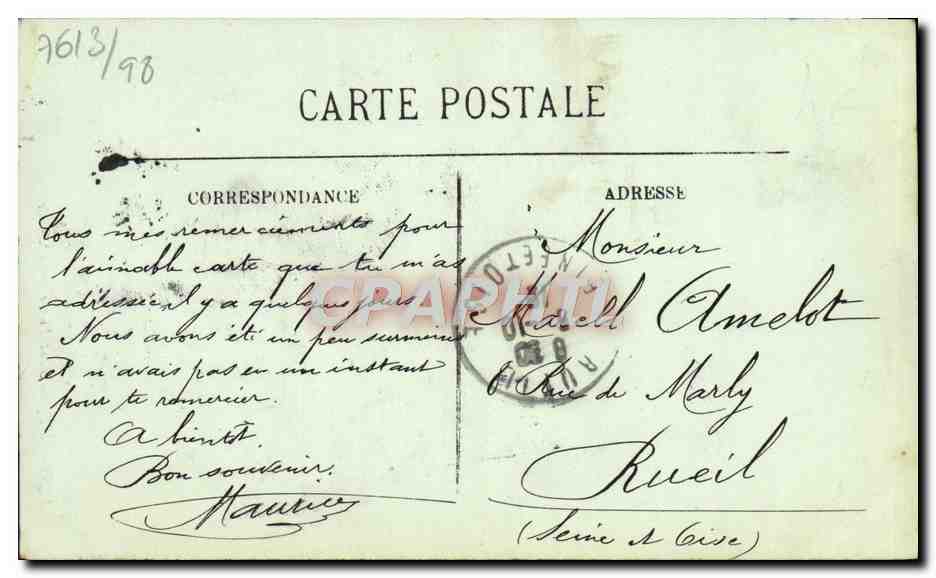 7613/98
CARTE POSTALE
CORRESPONDANCE
Tous mes remerciements pour
l'aimable carte que tu m'as
adressée il y a quelques jours.
Nous avons été un peu surmenés
et n'avais pas eu un instant
pour te remercier.
A bientôt.
Bon souvenir.
Maurice
ADRESSE
Monsieur
Marcel Amelot
6 Rue de Marly
Rueil
(Seine et Oise)
CPAPHIL